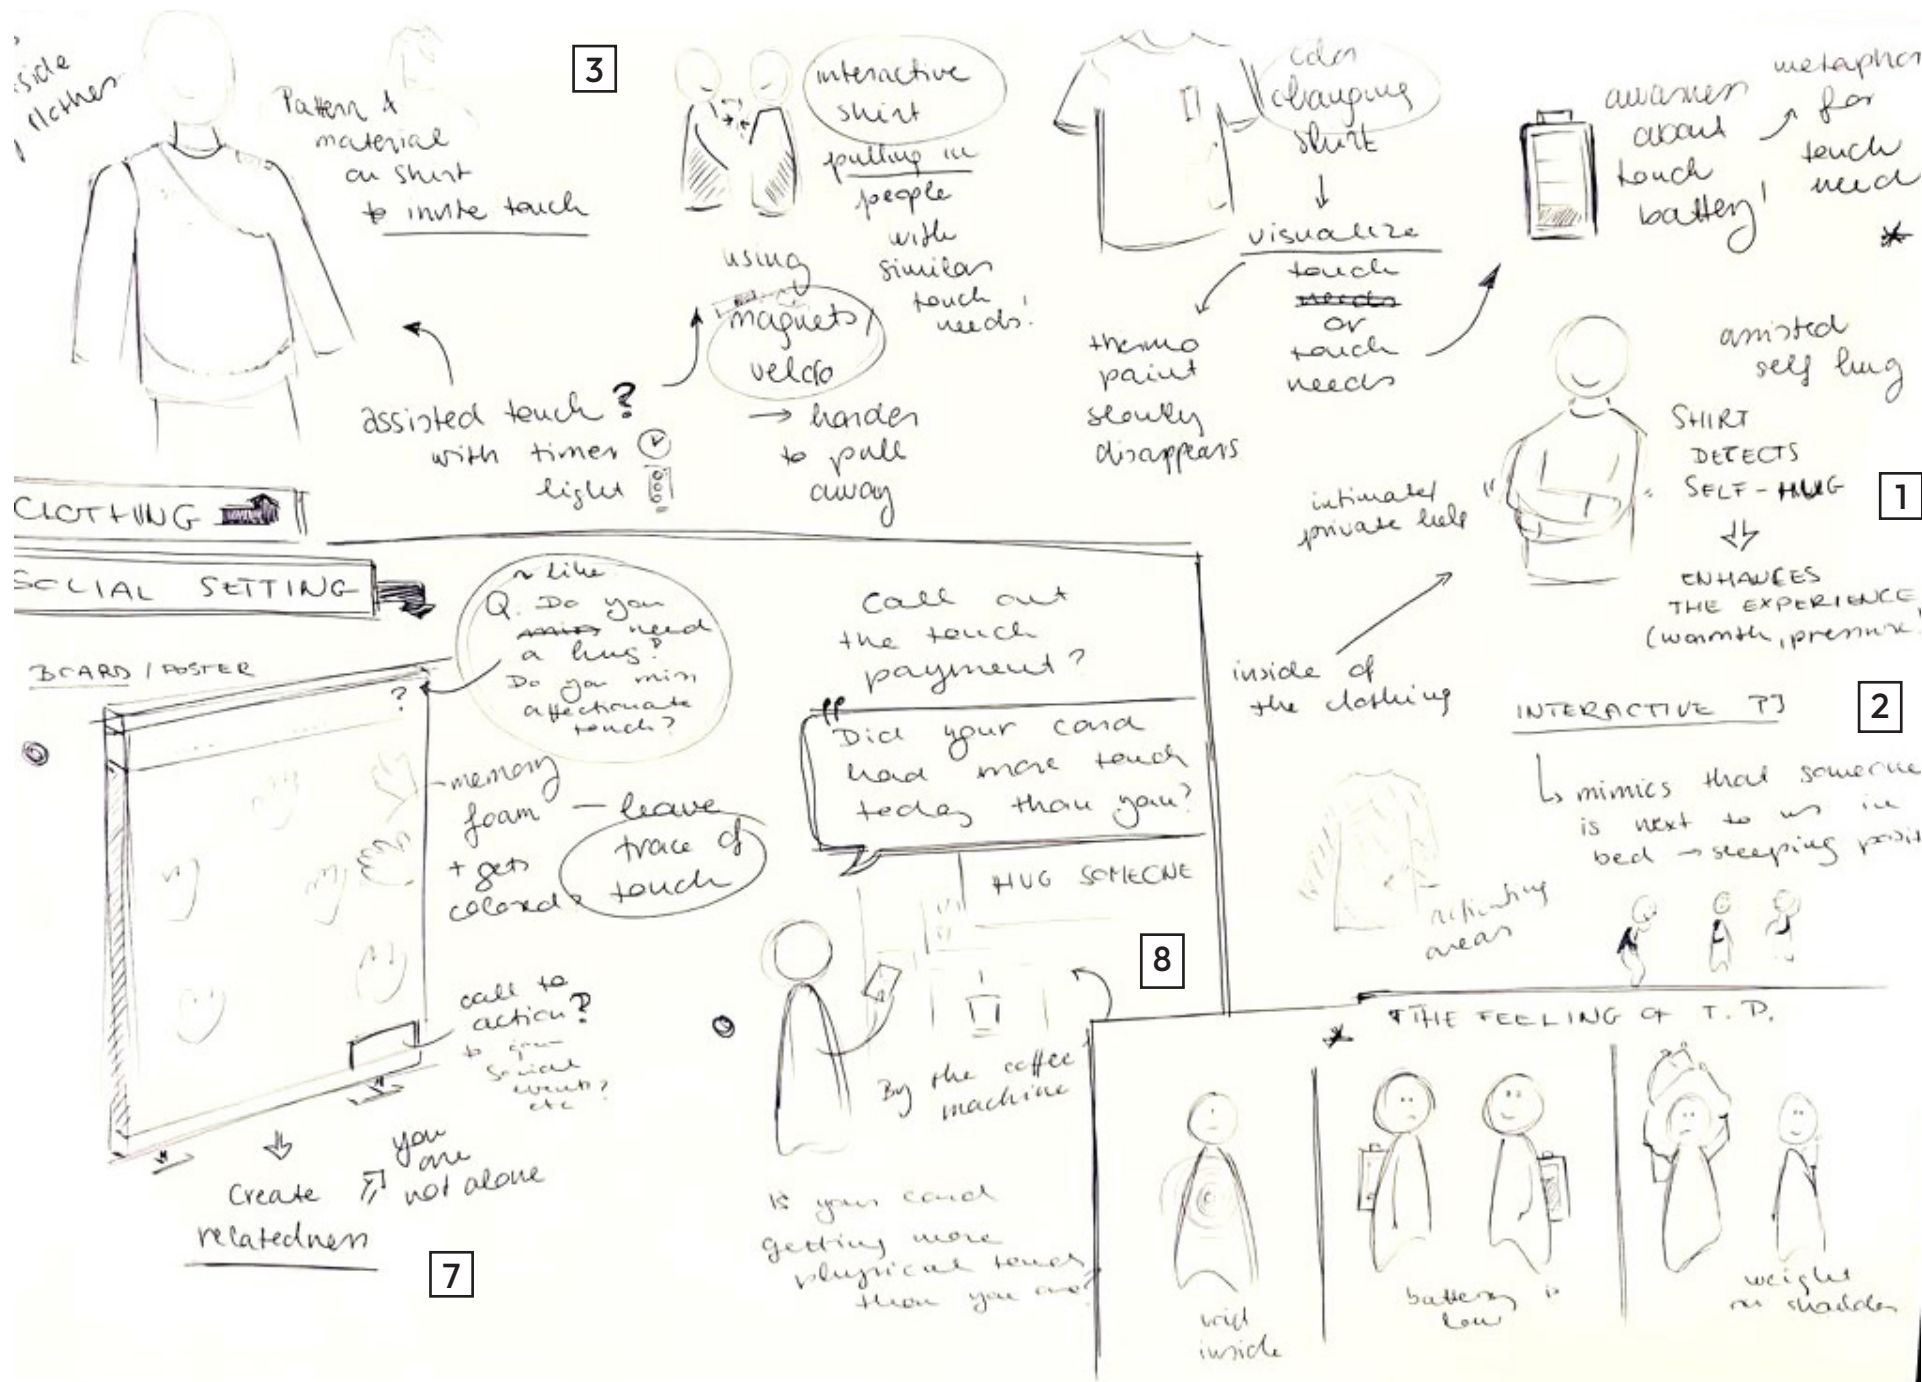 side
clothes
Pattern &
material
on shirt
to invite touch
3
interactive
shirt
pulling in
people
with
similar
touch
needs!
using
magnets/
velcro
→ harder
to pull
away
assisted touch?
with timer
light
color
changing
shirt
visualize
touch
needs
or
touch
needs
thermo
paint
slowly
disappears
awarness
about
touch
battery!
metaphor
for
touch
need
assisted
self hug
SHIRT
DETECTS
SELF-HUG
1
ENHANCES
THE EXPERIENCE
(warmth, pressure
intimate/
private help
inside of
the clothing
INTERACTIVE PJ
2
mimics that someone
is next to us in
bed → sleeping posit
activating
areas
CLOTHING
SOCIAL SETTING
BOARD / POSTER
~ like
Q. Do you
miss need
a hug?
Do you miss
affectionate
touch?
?
memory
foam
+ gets
colored
leave
trace of
touch
call to
action?
to join
social
events?
etc
Create
relatedness
you
are
not alone
7
Call out
the touch
payment?
"Did your card
had more touch
today than you?
HUG SOMEONE
8
By the coffee
machine
Is your card
getting more
physical touch
than you are?
THE FEELING OF T. D.
void
inside
battery is
low
weight
on shoulder